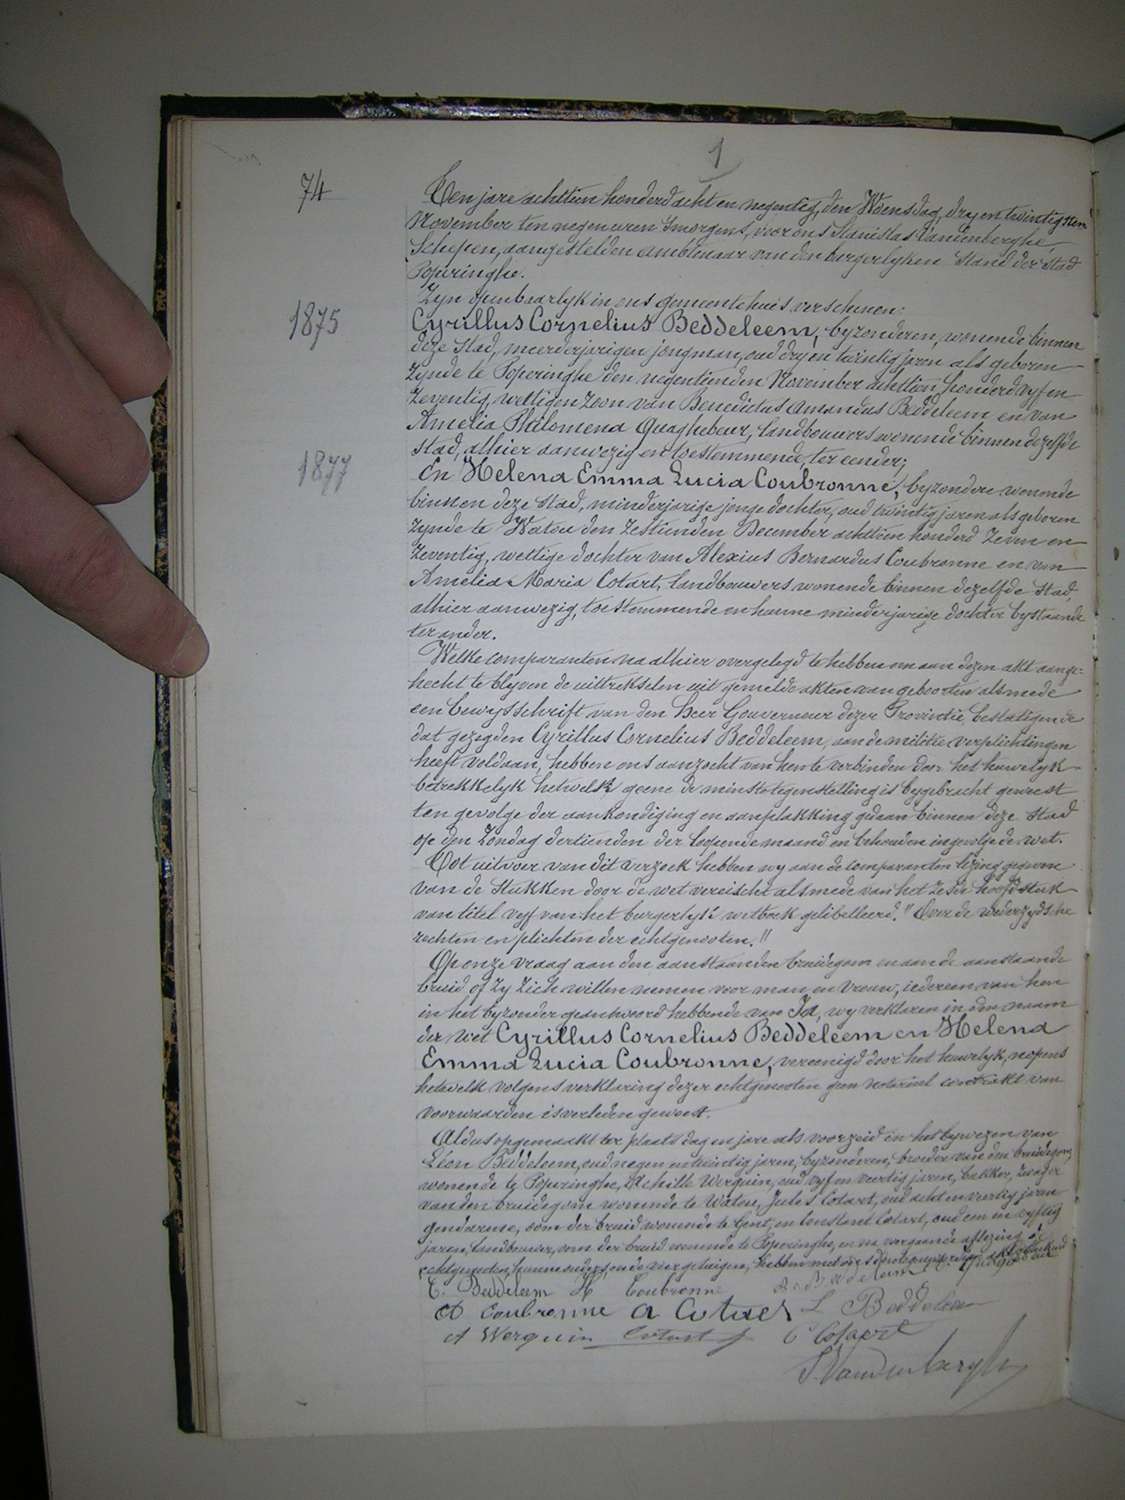 1
74
Ten jare achttien honderd acht en negentig, den Woensdag, dry en twintigsten
November ten negen uren 's morgens, voor ons Stanislas Vandenberghe
Schepen, aangestelden ambtenaar van den burgerlyken Stand der Stad
Poperinghe.
Zyn openbaarlyk in ons gemeentehuis verschenen:
1875
Cyrillus Cornelius Beddeleem, byzonderen, wonende binnen
deze Stad, meerderjarigen jongman, oud dry en twintig jaren als geboren
zynde te Poperinghe den negentienden November achttien honderd vyf en
zeventig, wettigen zoon van Benedictus Amandus Beddeleem en van
Amelia Philomena Quaghebeur, landbouwers wonende binnen dezelfde
Stad, alhier aanwezig en toestemmende, ter eender;
1877
En Helena Emma Lucia Coubronne, byzondere wonende
binnen deze Stad, minderjarige jonge dochter, oud twintig jaren als geboren
zynde te Watou den zestienden December achttien honderd zeven en
zeventig, wettige dochter van Alexius Bernardus Coubronne en van
Amelia Maria Cotart, landbouwers wonende binnen dezelfde Stad,
alhier aanwezig, toestemmende en hunne minderjarige dochter bystaande
ter ander.
Welke comparanten na alhier overgelegd te hebben om aan dezen akt aange-
hecht te blyven de uittrekselen uit gemelde akten van geboorten alsmede
een bewysschrift van den Heer Gouverneur dezer Provintie, bestatigende
dat gezegden Cyrillus Cornelius Beddeleem, aan de militie verplichtingen
heeft voldaan, hebben ons aanzocht van hen te verbinden door het huwelyk
betrekkelyk hetwelk geene de minste tegenstelling is bygebracht geweest
ten gevolge der aankondiging en aanplakking gedaan binnen deze Stad
op den Zondag dertienden der loopende maand en behouden ingevolge de wet.
Tot uitvoer van dit verzoek hebben wy aan de comparanten lezing gegeven
van de Stukken door de wet vereischt alsmede van het zesde hoofdstuk
van titel vyf van het burgerlyk wetboek gelibelleerd: "Over de wederzydsche
rechten en plichten der echtgenooten."
Op onze vraag aan den aanstaanden bruidegom en aan de aanstaande
bruid of zy zich willen nemen voor man en vrouw; iedereen van hen
in het byzonder geantwoord hebbende van Ja, wy verklaren in den naam
der wet Cyrillus Cornelius Beddeleem en Helena
Emma Lucia Coubronne, vereenigd door het huwelyk, nopens
hetwelk volgens verklaring dezer echtgenooten geen notarieel contrakt van
voorwaarden is verleden geweest.
Aldus opgemaakt ter plaats dag en jare als voorzeid in het bywezen van
Léon Beddeleem, oud negen en twintig jaren, byzonderen, broeder van den bruidegom,
wonende te Poperinghe, Achille Werquin, oud vyf en veertig jaren, bakker, zwager
van den bruidegom wonende te Watou, Jules Cotart, oud acht en veertig jaren
gendarme, oom der bruid wonende te Gent, en Constant Cotart, oud een en vyftig
jaren, landbouwer, oom der bruid wonende te Poperinghe, en na voorgaande aflezing de
echtgenooten, hunne ouders, en de vier getuigen, hebben met ons
C. Beddeleem H Coubronne
A Coubronne A Cotart L Beddeleem
A Werquin Cotart J C Cotart
S. Vandenberghe